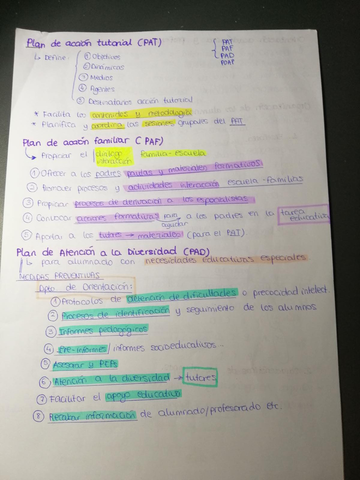 Plan de acción tutorial (PAT)
PAT
PAF
PAD
POAP
Define
① Objetivos
② Dinámicas
③ Medios
④ Agentes
⑤ Destinatarios acción tutorial
* Facilita los materiales y metodología
* Planifica y coordina las sesiones grupales del PAT
Plan de acción familiar (PAF)
Propiciar el diálogo interacción familia-escuela
① Ofrecer a los padres pautas y materiales formativos
② procesos y actividades interacción escuela-familias
③ Propiciar procesos de derivación a los especialistas
④ Convocar acciones formativas para ayudar a los padres en la tarea educativa
⑤ Aportar a los tutores → materiales (para el PAT)
Plan de Atención a la Diversidad (PAD)
para alumnado con necesidades educativas especiales
MEDIDAS PREVENTIVAS
Dpto de Orientación:
① Protocolos de detención de dificultades o precocidad intelect
② Procesos de identificación y seguimiento de los alumnos
③ Informes pedagógicos
④ Pre-informes / informes socioeducativos..
⑤ Asesorar
⑥ Atención a la diversidad → tutores
⑦ Facilitar el apoyo educativo
⑧ Recabar información de alumnado/profesorado etc.